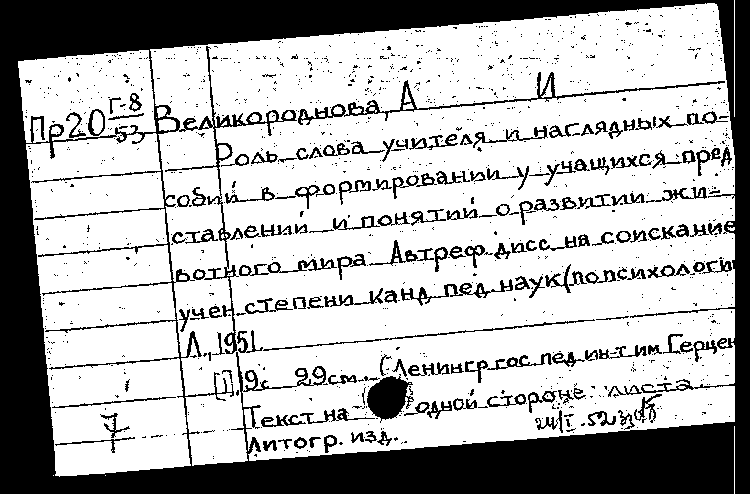 Пр20 Г-8/53 Великороднова, А И
Роль слова учителя и наглядных по-
собий в формировании у учащихся пред
ставлений и понятий о развитии жи=
вотного мира Автреф. дисс. на соискание
учен степени канд пед. наук (по психологи
Л., 1951.
[1], 19с 29см. (Ленингр гос. пед ин-т им Герцен
Текст на одной стороне листа
Литогр. изд.. 24/I-52